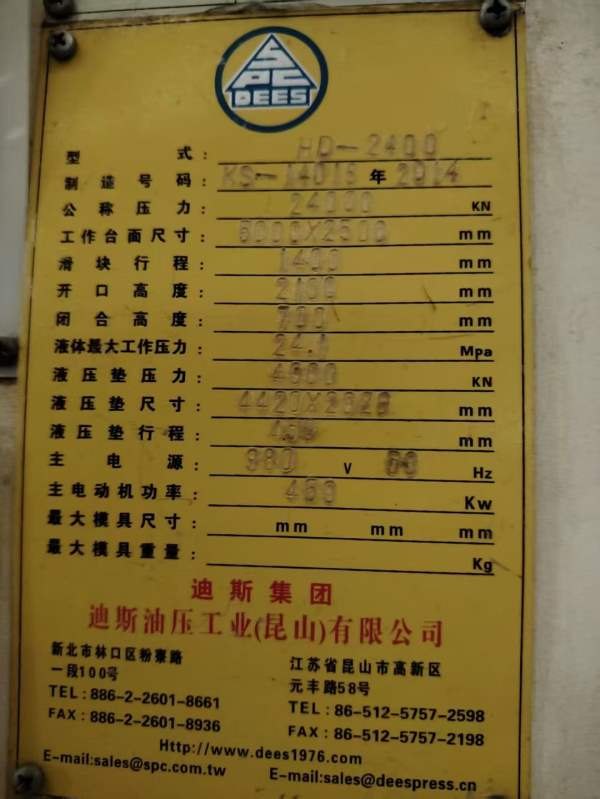 SPC
DEES
型式： HD-2400
制造号码： 年 2014
公称压力： 24000 KN
工作台面尺寸： mm
滑块行程： 1400 mm
开口高度： 2100 mm
闭合高度： 700 mm
液体最大工作压力： Mpa
液压垫压力： KN
液压垫尺寸： mm
液压垫行程： mm
主电源： V Hz
主电动机功率： Kw
最大模具尺寸： mm mm mm
最大模具重量： Kg
迪斯集团
迪斯油压工业(昆山)有限公司
新北市林口区粉寮路
一段100号
TEL：886-2-2601-8661
FAX：886-2-2601-8936
江苏省昆山市高新区
元丰路58号
TEL：86-512-5757-2598
FAX：86-512-5757-2198
Http://www.dees1976.com
E-mail:sales@spc.com.tw
E-mail:sales@deespress.cn